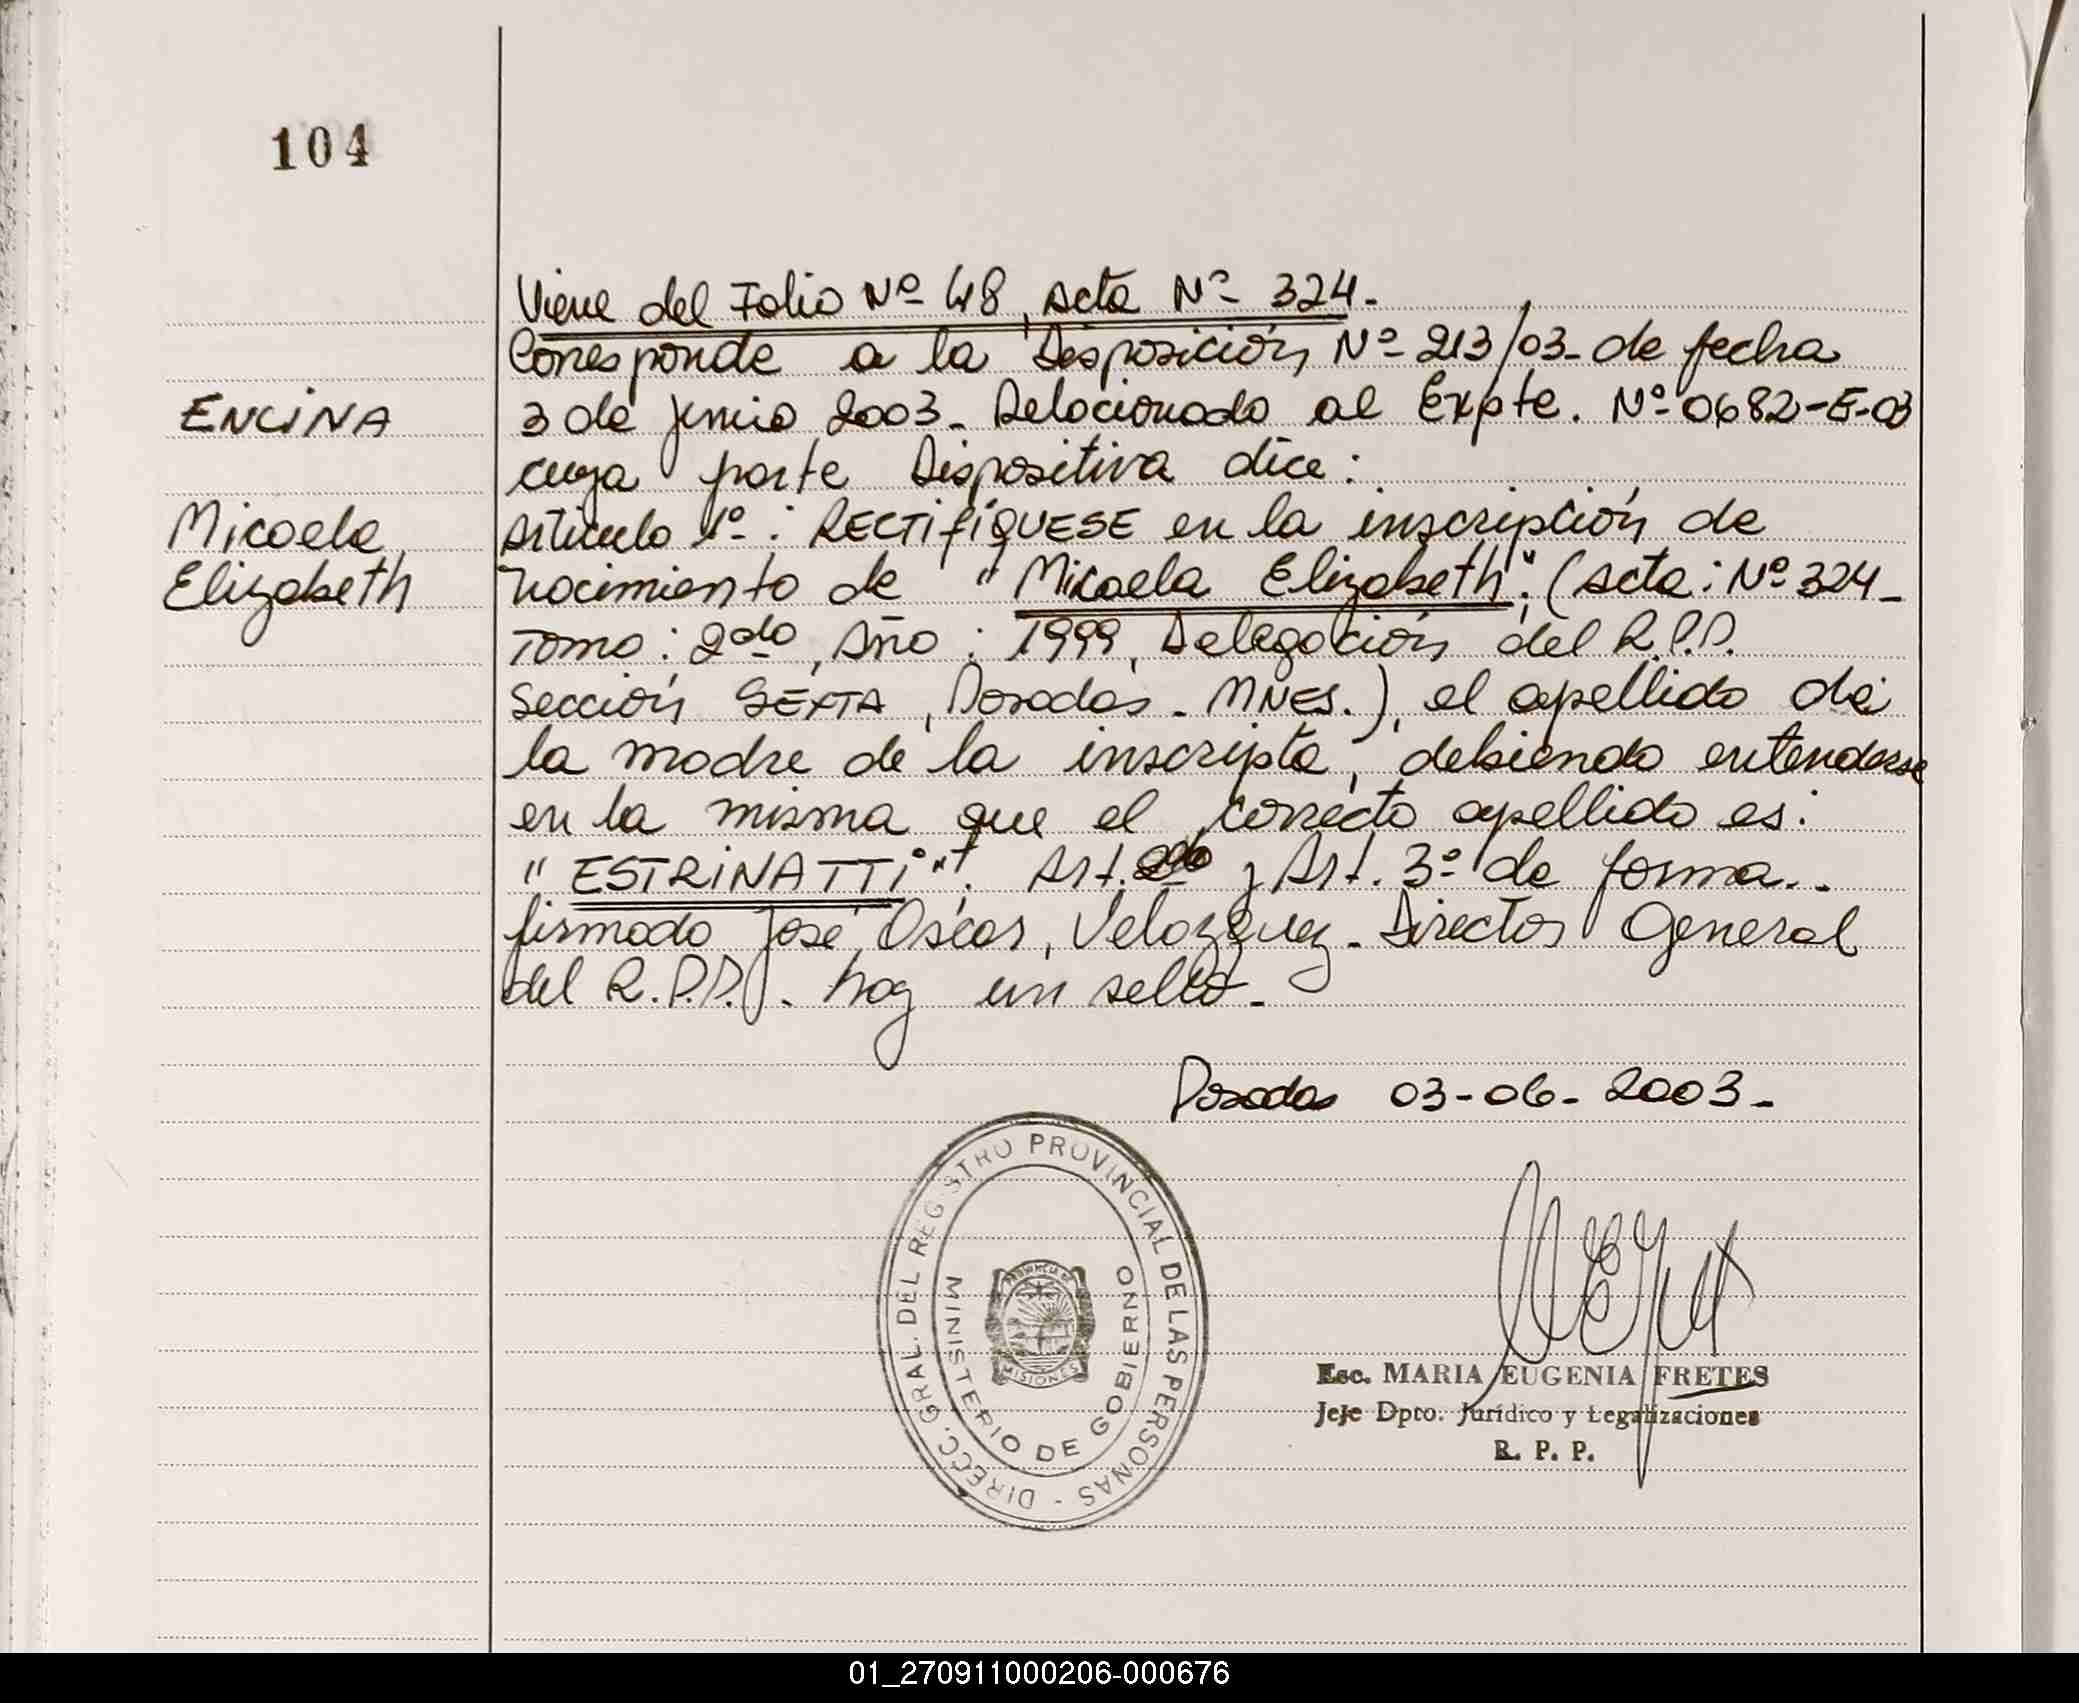 104
Viene del Folio Nº 48, Acta Nº 324.-
Corresponde a la Disposición Nº 213/03 - de fecha
ENCINA
3 de junio 2003 - Relacionado al Expte. Nº 0682-E-03
cuya parte Dispositiva dice:
Micaela
Artículo 1º: RECTIFÍQUESE en la inscripción de
Elizabeth
nacimiento de "Micaela Elizabeth"; (Acta: Nº 324 -
Tomo: 2do, Año: 1999, Delegación del R.P.P.
Sección SEXTA, Posadas - MNES.), el apellido de
la madre de la inscripta, debiendo entenderse
en la misma que el correcto apellido es:
"ESTRINATTI". Art. 2do y Art. 3º de forma..
firmado José Oscar, Velozquez - Director General
del R.P.P. - hay un sello -
Posadas 03-06-2003 -
DIRECC. GRAL. DEL REGISTRO PROVINCIAL DE LAS PERSONAS -
MINISTERIO DE GOBIERNO
PROVINCIA DE
MISIONES
Esc. MARIA EUGENIA FRETES
Jefe Dpto. Jurídico y Legalizaciones
R. P. P.
01_270911000206-000676